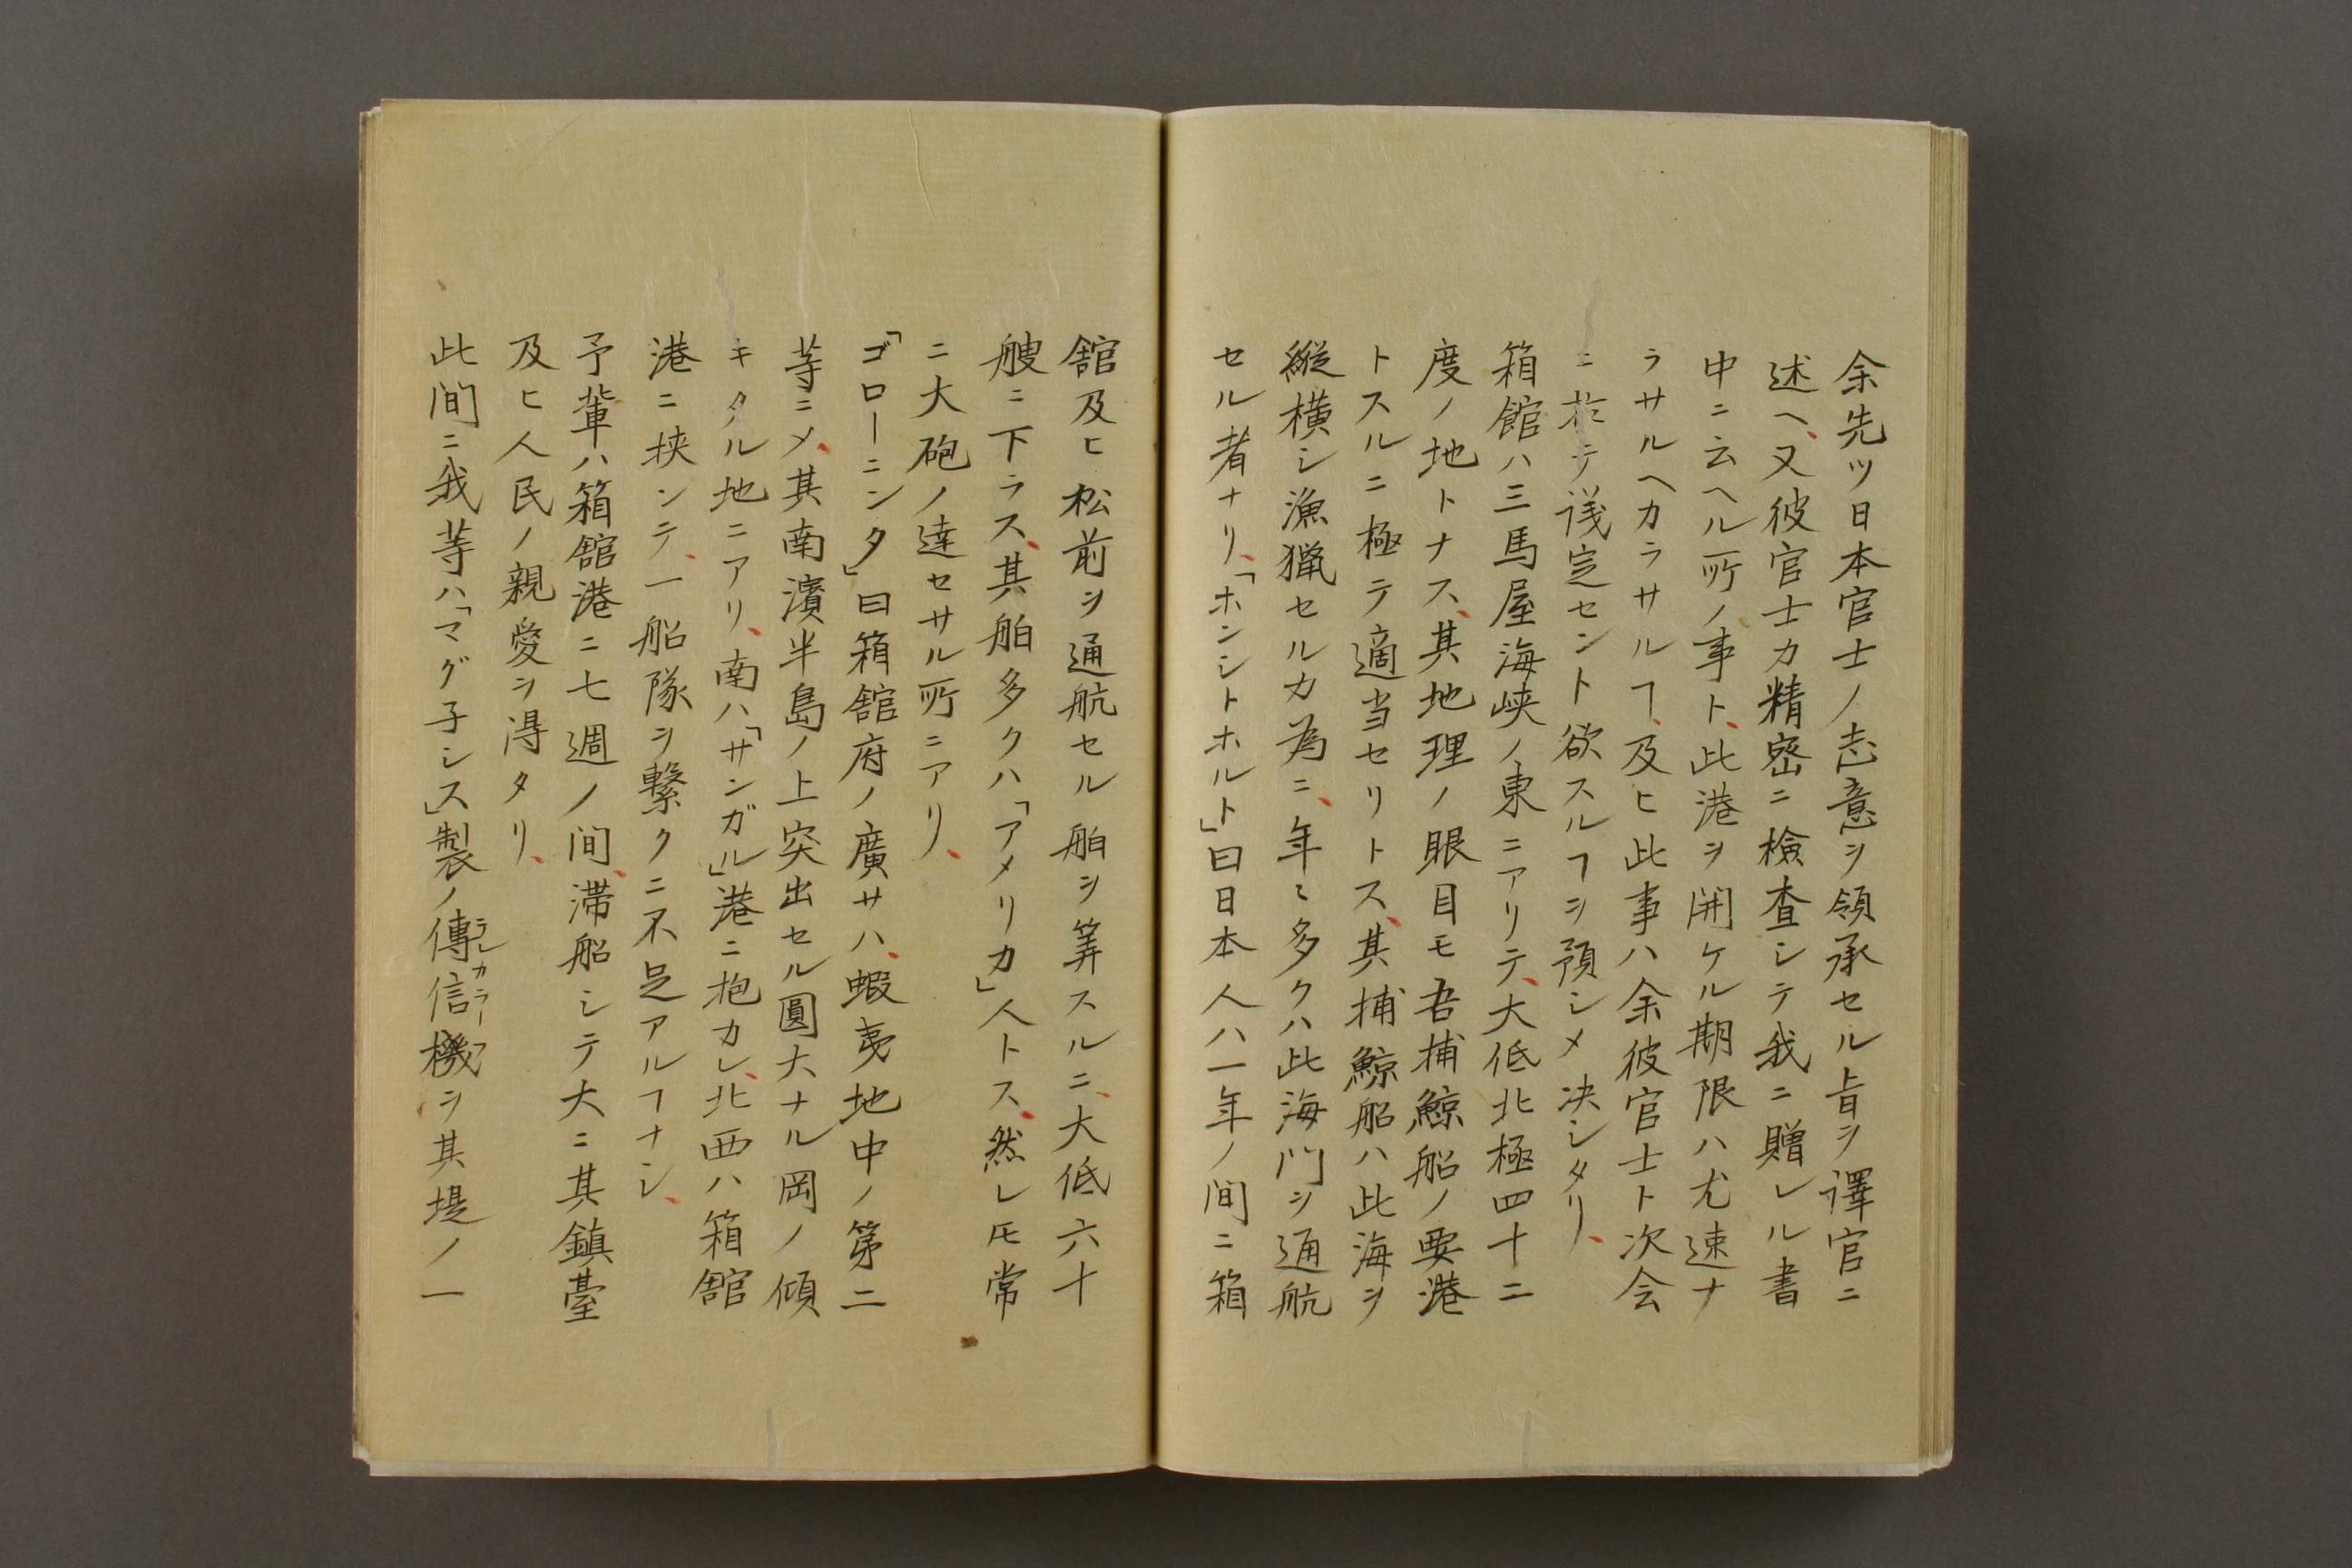 余先ツ日本官士ノ志意ヲ領承セル旨ヲ譯官ニ
述ヘ、又彼官士カ精密ニ檢査シテ我ニ贈レル書
中ニ云ヘル所ノ事ト、此港ヲ開ケル期限ハ尤速ナ
ラサルヘカラサルヿ、及ヒ此事ハ余彼官士ト次会
ニ於テ議定セント欲スルヿヲ預シメ決シタリ、
箱館ハ三馬屋海峡ノ東ニアリテ、大低北極四十二
度ノ地トナス、其地理ノ眼目モ吾捕鯨船ノ要港
トスルニ極テ適当セリトス、其捕鯨船ハ此海ヲ
縦横シ漁猟セルカ為ニ、年〻多クハ此海門ヲ通航
セル者ナリ、「ホンシトホルト」曰日本人ハ一年ノ間ニ箱
舘及ヒ松前ヲ通航セル舶ヲ筭スルニ、大低六十
艘ニ下ラス、其舶多クハ「アメリカ」人トス、然レ𪜈常
ニ大砲ノ達セサル所ニアリ、
「ゴローニンタ」曰箱舘府ノ廣サハ、蝦夷地中ノ第二
等ニ〆、其南濱半島ノ上突出セル圓大ナル岡ノ傾
キタル地ニアリ、南ハ「サンガル」港ニ抱カレ、北西ハ箱舘
港ニ挟ンテ、一船隊ヲ繋クニ不足アルヿナシ、
予輩ハ箱舘港ニ七週ノ間、滞船シテ大ニ其鎮臺
及ヒ人民ノ親愛ヲ淂タリ、
此間ニ我等ハ「マグ子シス」製ノ傳信機ヲ其堤ノ一